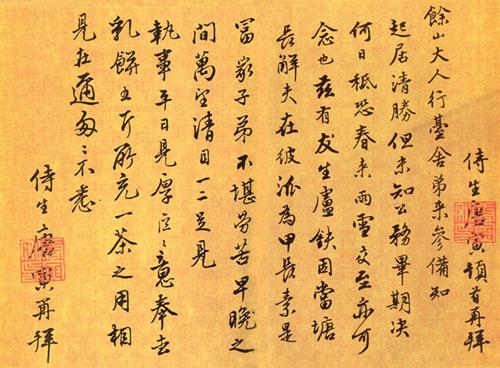 侍生唐寅頓首再拜
餘山大人行臺舍弟来參備知
起居清勝但未知公務畢期決
何日秪恐春来雨雪交至亦可
念也茲有友生盧鈇因當塘
長解夫在彼派為甲長素是
冨家子弟不堪勞苦早晚之
間萬望清目一二足見
執事平日見厚區々之意奉去
乳餅五斤聊充一茶之用相
見在邇匆々不悉
侍生唐寅再拜